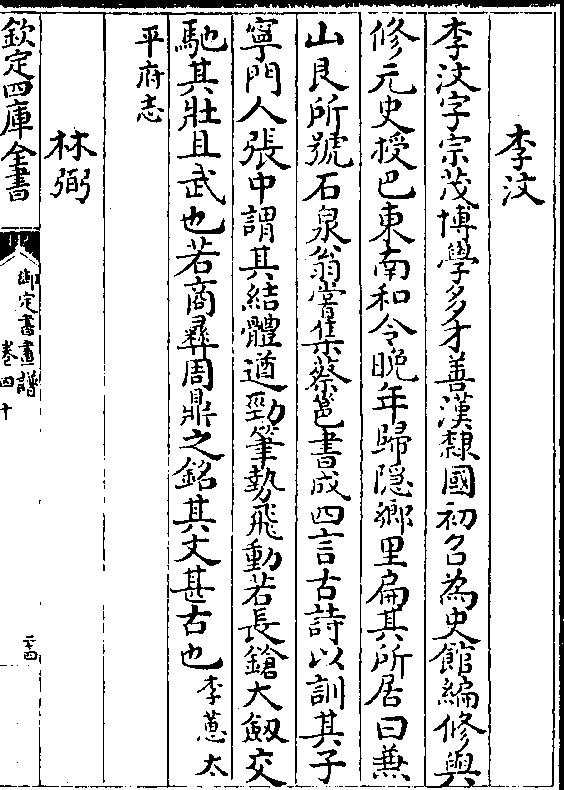 李汶
李汶字宗茂博學多才善漢隸國初召為史館編修與
修元史授巴東南和令晚年歸隠鄉里扁其所居曰兼
山艮所號石泉翁嘗集蔡邕書成四言古詩以訓其子
寧門人張中謂其結體遒勁筆勢飛動若長鎗大劔交
馳其壯且武也若商彛周鼎之銘其文甚古也李蔥太
平府志
林弼
欽定四庫全書
御定書畫譜
卷四十
二十四